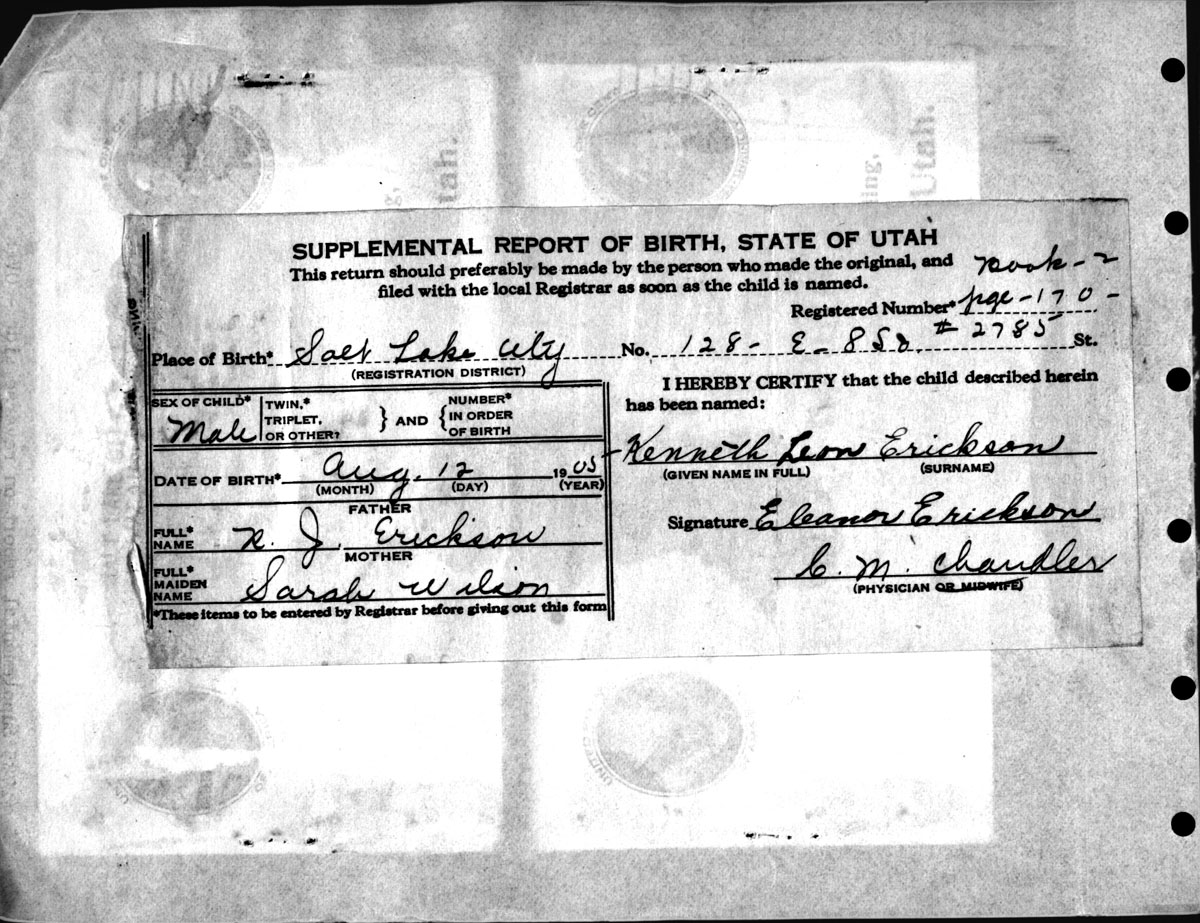 SUPPLEMENTAL REPORT OF BIRTH, STATE OF UTAH
This return should preferably be made by the person who made the original, and
filed with the local Registrar as soon as the child is named.
Book-2
Registered Number* pge-170-
# 2785
Place of Birth* Salt Lake City No. 128- E- 8 So. St.
(REGISTRATION DISTRICT)
SEX OF CHILD* Male
TWIN,*
TRIPLET,
OR OTHER?
} AND {
NUMBER*
IN ORDER
OF BIRTH
DATE OF BIRTH* Aug. 12 1905
(MONTH) (DAY) (YEAR)
FATHER
FULL*
NAME
N. J. Erickson
MOTHER
FULL*
MAIDEN
NAME
Sarah Wilson
*These items to be entered by Registrar before giving out this form
I HEREBY CERTIFY that the child described herein
has been named:
Kenneth Leon Erickson
(GIVEN NAME IN FULL) (SURNAME)
Signature Eleanor Erickson
C. M. Chandler
(PHYSICIAN OR MIDWIFE)
tah.
ing,
Utah.